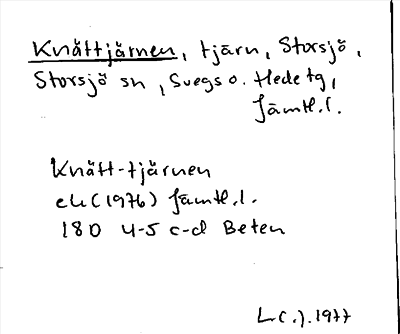 Knättjärnen, tjärn, Storsjö,
Storsjö sn, Svegs o. Hede tg,
Jämtl. l.
Knätt-tjärnen
ek (1976) Jämtl. l.
18D 4-5 c-d Beten
1977